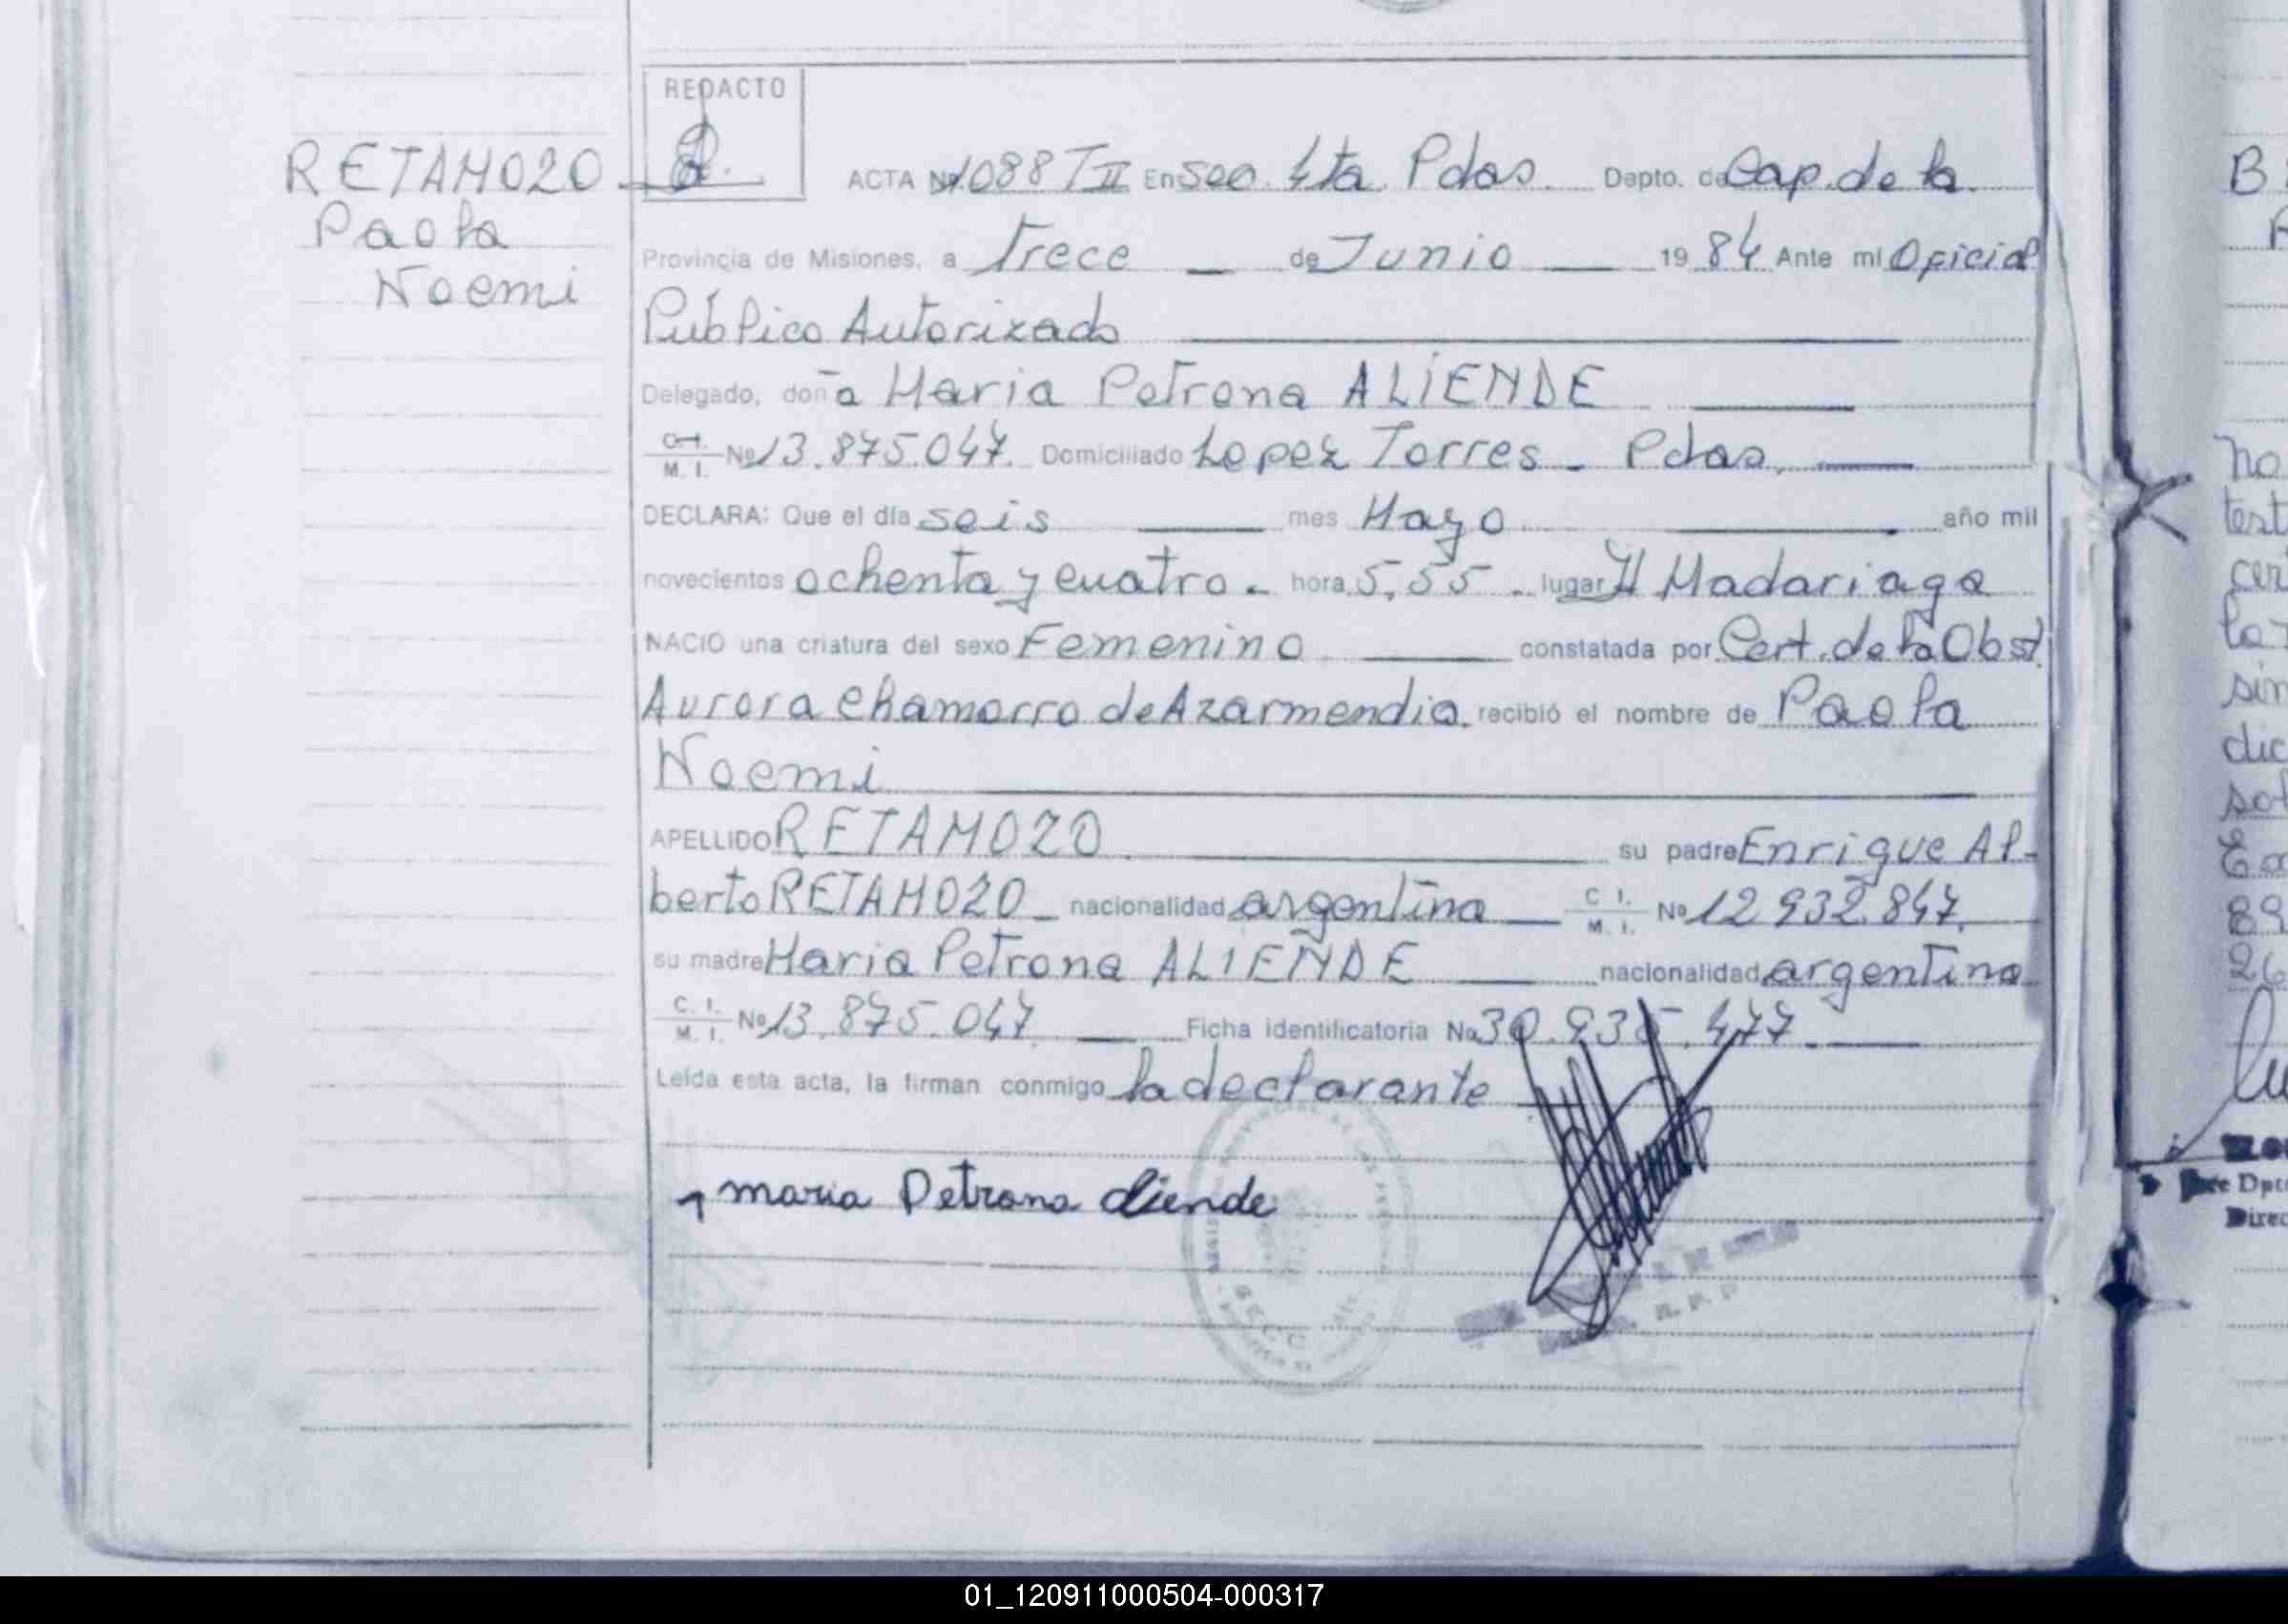 REDACTO
RETAMOZO
Paola
Noemi
ACTA Nº 1088 T II En Sec. 4ta. Pdas. Depto. de Cap. de la
Provincia de Misiones, a Trece de Junio 19 84 Ante mi Oficial
Público Autorizado
Delegado, doña María Petrona ALIENDE
C. I. M. I. Nº 13.875.047. Domiciliado Lopez Torres - Pdas.
DECLARA: Que el día seis mes Mayo año mil
novecientos ochenta y cuatro - hora 5,55 - lugar H Madariaga
NACIO una criatura del sexo Femenino constatada por Cert. de la Obst.
Aurora Chamorro de Azarmendia. recibió el nombre de Paola
Noemi
APELLIDO RETAMOZO su padre Enrique Al-
berto RETAMOZO - nacionalidad argentina C. I. M. I. Nº 12.932.847.
su madre Maria Petrona ALIENDE nacionalidad argentina
C. I. M. I. Nº 13.875.047 Ficha identificatoria No 30.935.477.
Leída esta acta, la firman conmigo la declarante
maria Petrona Aliende
SECC
R. P. P
01_120911000504-000317